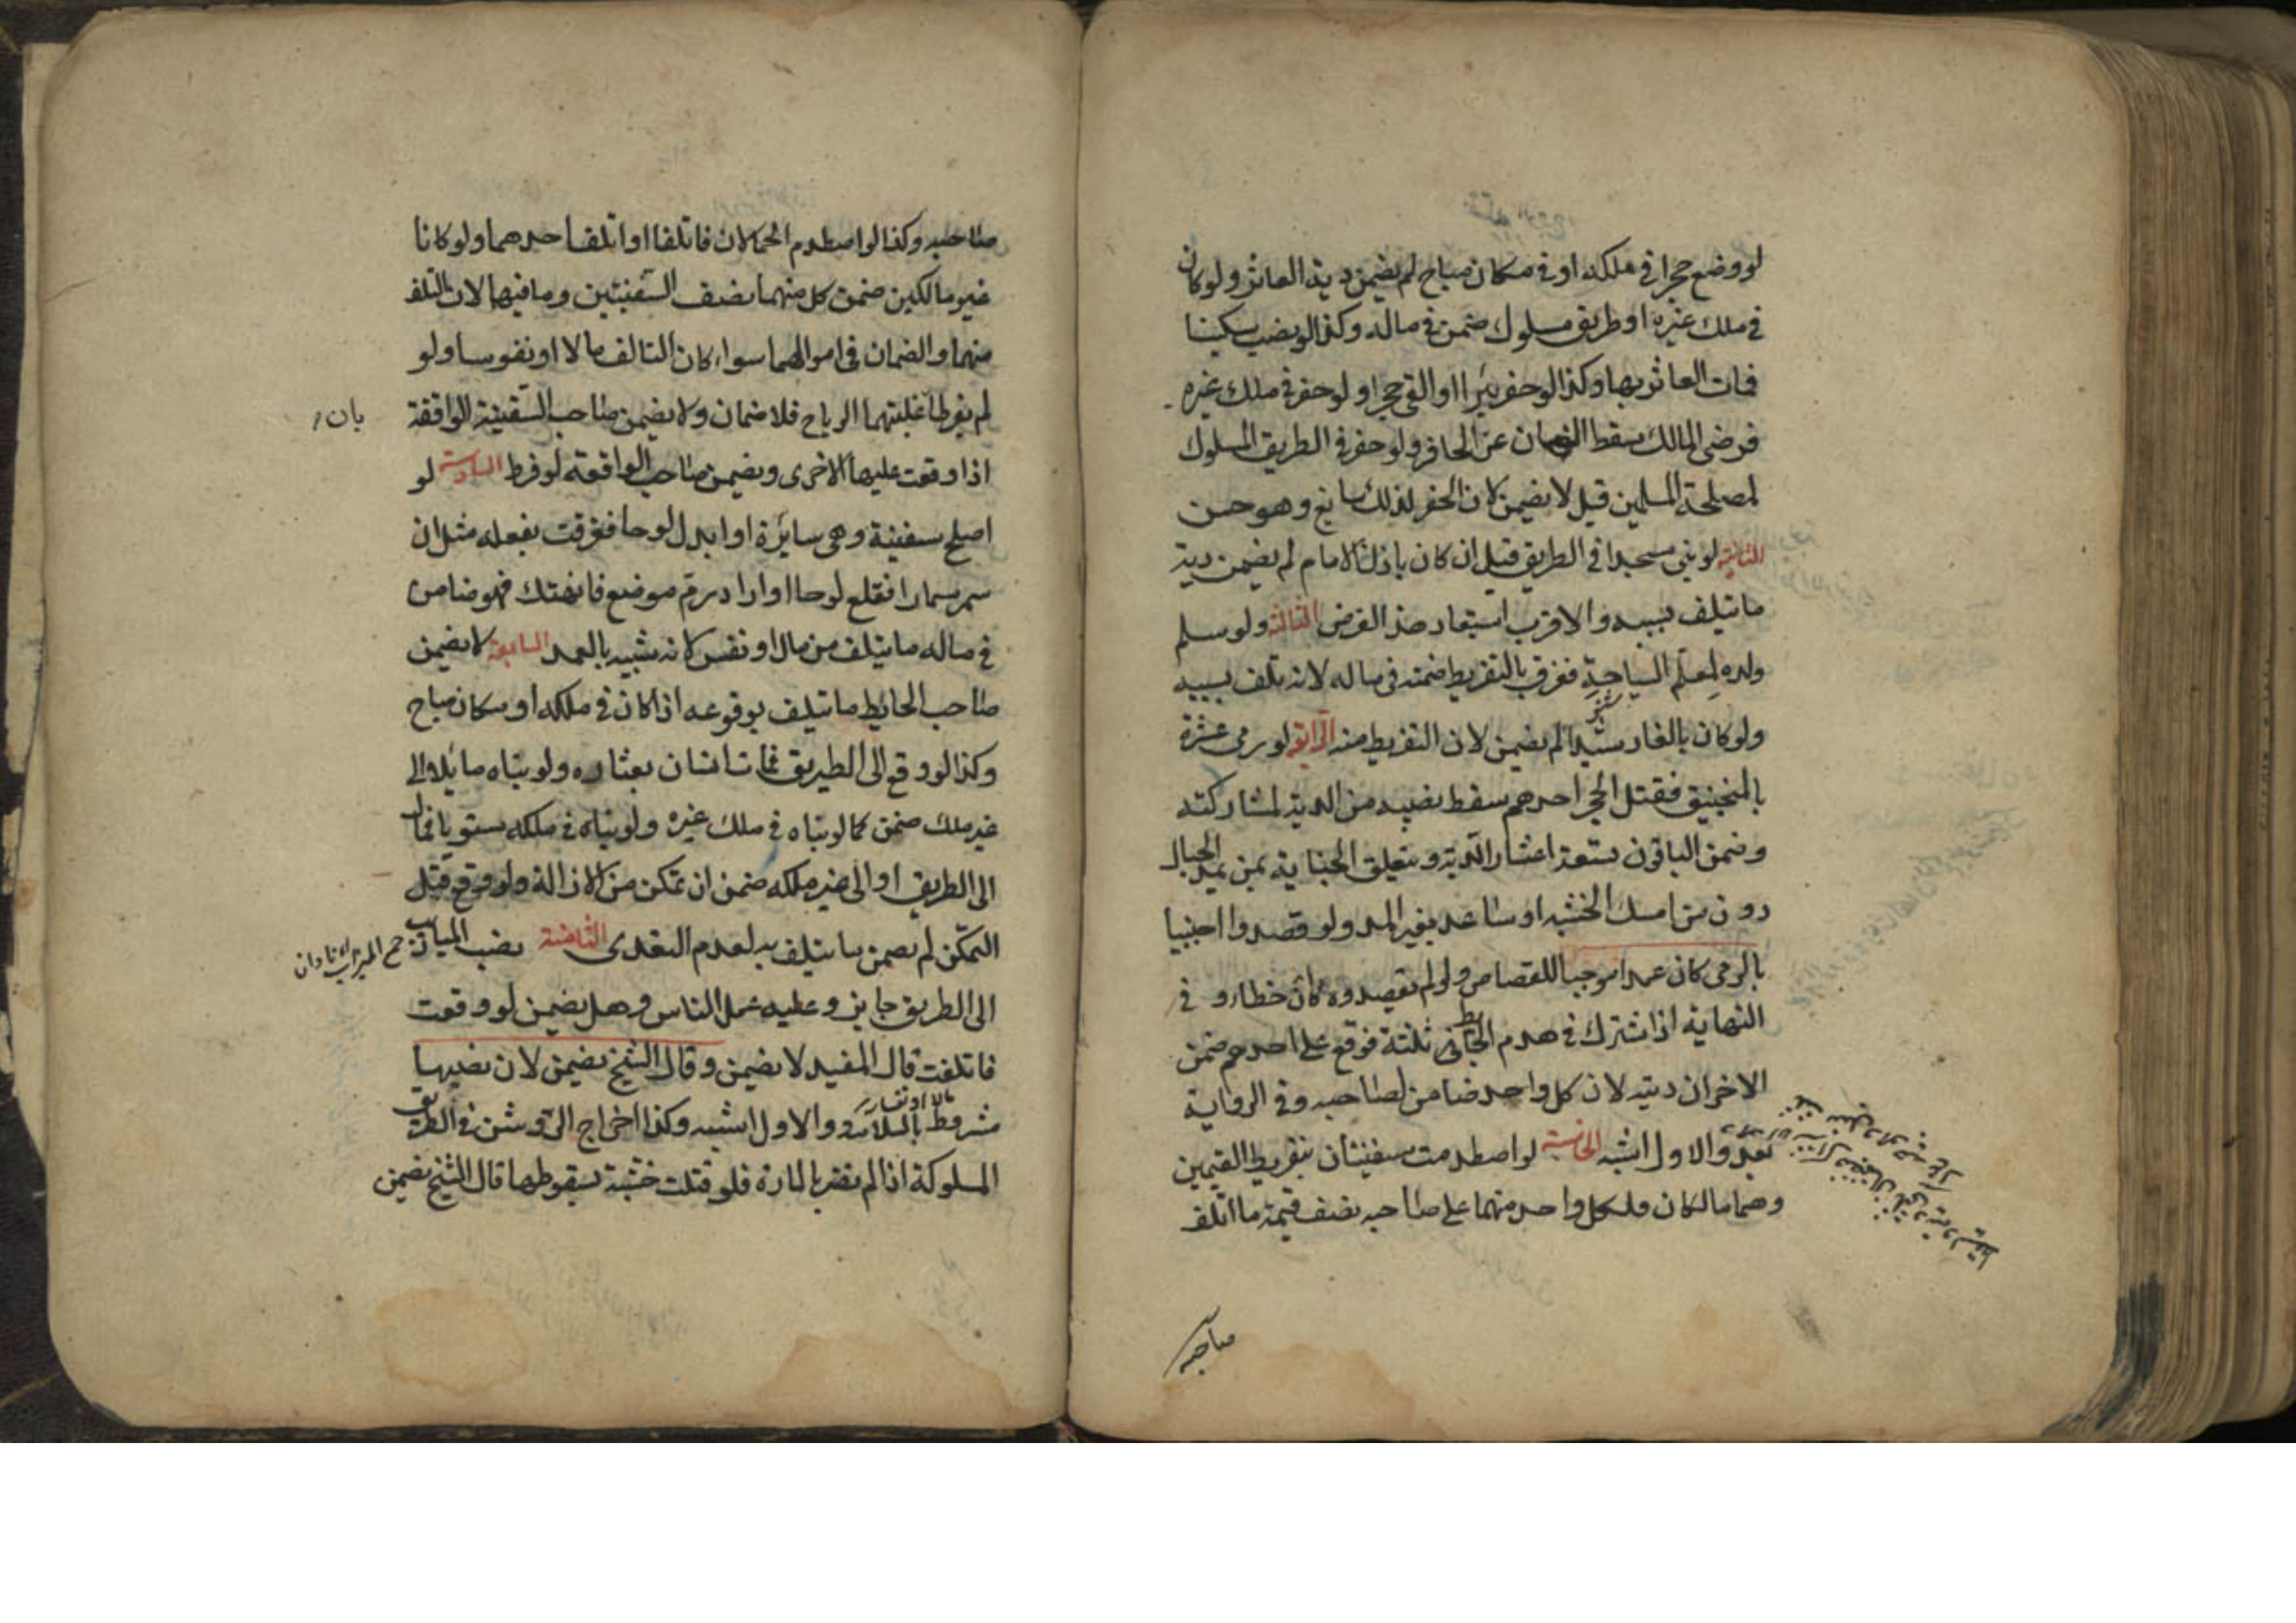 لو وضع حجرا في ملكه او في مكان مباح لم يضمن دية العاثر ولو كان
في ملك غيره او طريق مسلوك ضمن في ماله وكذا لو نصب سكينا
فمات العاثر بها وكذا لو حفر بئرا او القى حجرا ولو حفر في ملك غيره
فرضى المالك سقط الضمان عن الحافر ولو حفر في الطريق المسلوك
لمصلحة المسلمين قيل لا يضمن لان الحفر لذلك سايغ وهو حسن
الثانية لو بنى مسجدا في الطريق قيل ان كان باذن الامام لم يضمن دية
ما يتلف بسببه والاقرب استبعاد هذا الفرض الثالثة ولو سلم
ولده لمعلم السباحة فغرق بالتفريط ضمنه في ماله لانه تلف بسببه
ولو كان بالغا رشيدا لم يضمن لان التفريط منه الرابعة لو رمى عشرة
بالمنجنيق فقتل الحجر احدهم سقط نصيبه من الدية لمشاركته
وضمن الباقون تسعة اعشار الدية وتتعلق الجناية بمن يمد الحبال
دون من امسك الخشبه او ساعد بغير المد ولو قصدوا اجنبيا
بالرمى كان عمدا موجبا للقصاص ولو لم يقصدوه كان خطا وفي
النهاية اذا اشترك في هدم الحائط ثلثة فوقع على احدهم ضمن
الاخران ديته لان كل واحد ضامن لصاحبه وفي الرواية
بعد والاول اشبه الخامسة لو اصطدمت سفينتان بتفريط القيمين
وهما مالكان فلكل واحد منهما على صاحبه نصف قيمة ما اتلف
صاحبه
صاحبه وكذا لو اصطدم الحمالان فاتلفا او اتلف احدهما ولو كانا
غير مالكين ضمن كل منهما نصف السفينتين وما فيهما لان التلف
منهما والضمان في اموالهما سواء كان التالف مالا او نفوسا ولو
لم يفرطا غلبتهما الرياح فلا ضمان ولا يضمن صاحب السفينة الواقفة
بان
اذا وقعت عليها الاخرى ويضمن صاحب الواقعة لو فرط السادسة لو
اصلح سفينة وهى سايرة او ابدل لوحا فغرقت بفعله مثل ان
سمر مسمارا فقلع لوحا او اراد رم موضع فانهتك فهو ضامن
في ماله ما يتلف من مال او نفس لانه شبيه بالعمد السابعة لا يضمن
صاحب الحايط ما يتلف بوقوعه اذا كان في ملكه او مكان مباح
وكذا لو وقع الى الطريق فمات انسان بعثاره ولو بناه مايلا الى
غير ملك ضمن كما لو بناه في ملك غيره ولو بناه في ملكه مستويا فمال
الى الطريق او الى غير ملكه ضمن ان تمكن من الازالة ولو وقع قبل
التمكن لم يضمن ما يتلف به لعدم التعدى الثامنة نصب الميازيب
جمع الميزاب ناودان
الى الطريق جايز وعليه عمل الناس وهل يضمن لو وقعت
فاتلفت قال المفيد لا يضمن وقال الشيخ يضمن لان نصبها
مشروط بالسلامة والاول اشبه وكذا اخراج الرواشن في الطريق
المسلوكة اذا لم تضر بالمارة فلو قتلت خشبة بسقوطها قال الشيخ يضمن